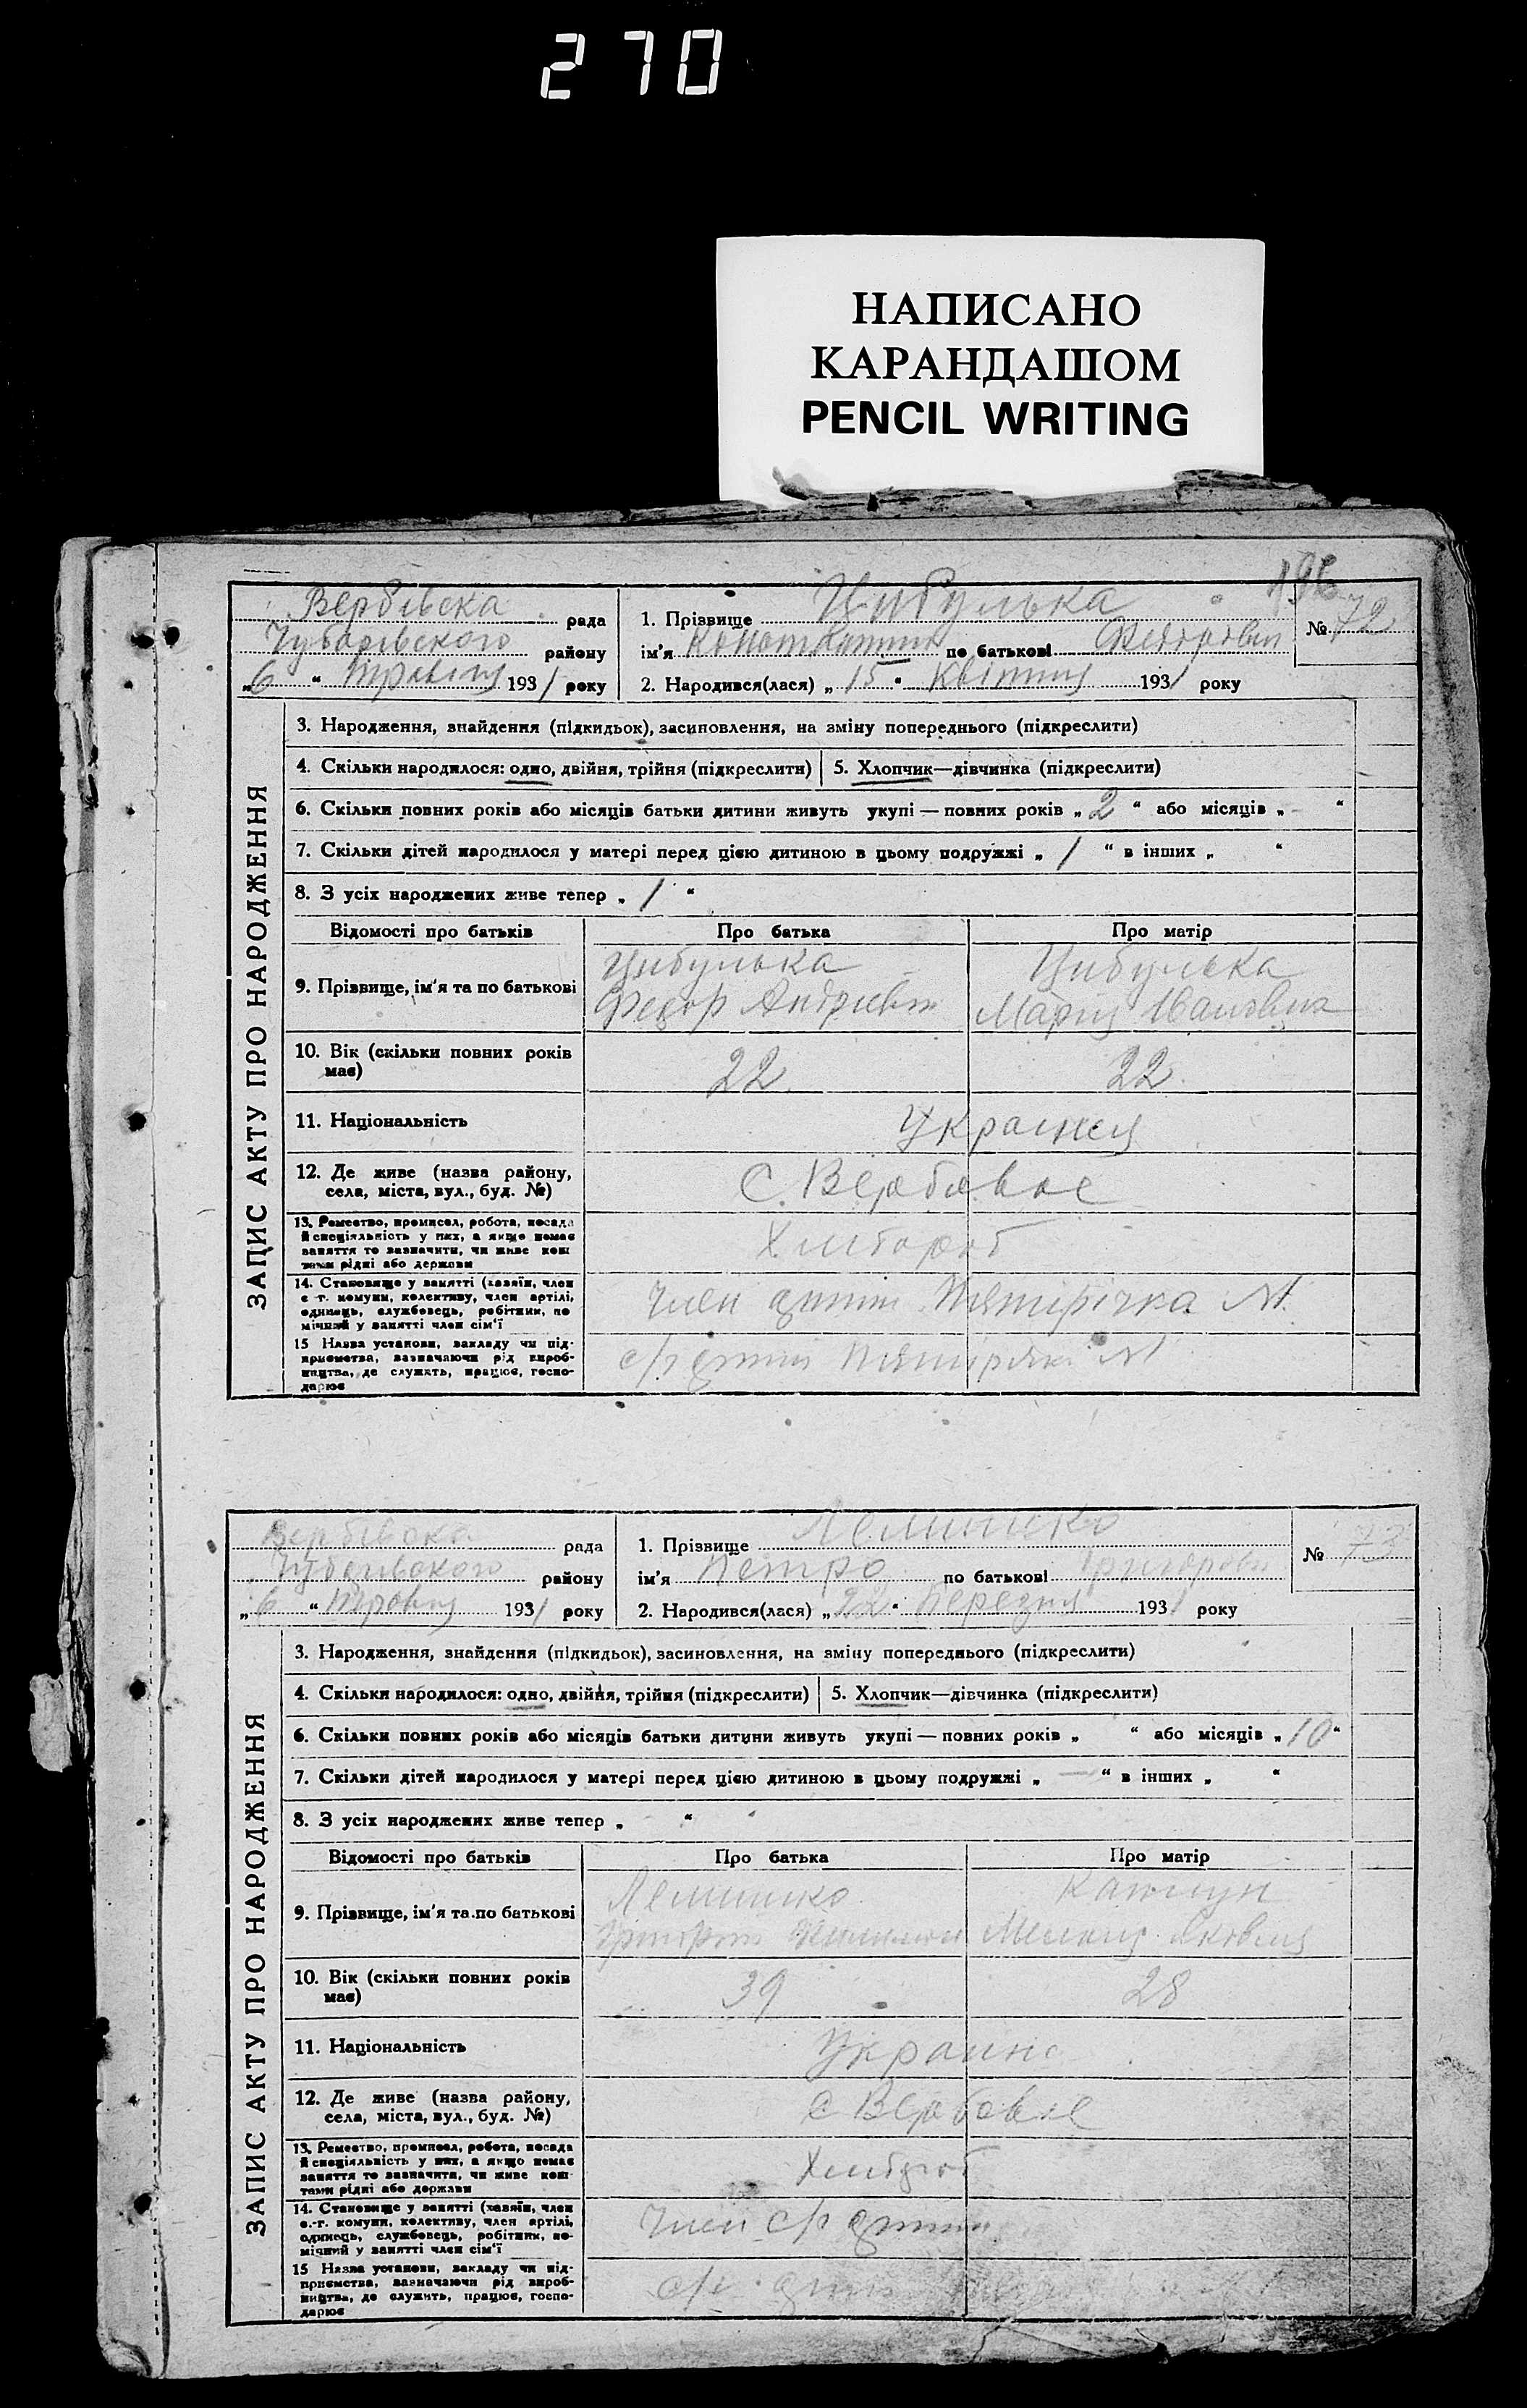 270
НАПИСАНО
КАРАНДАШОМ
PENCIL WRITING
196
Вербівска рада
Чубарівського району
„6“ Травня 1931 року
1. Прізвище Цибулька
ім'я Констянтин по батькові Федорович
№ 72
2. Народився(лася) „15“ Квітня 1931 року
ЗАПИС АКТУ ПРО НАРОДЖЕННЯ
3. Народження, знайдення (підкидьок), засиновлення, на зміну попереднього (підкреслити)
4. Скільки народилося: одно, двійня, трійня (підкреслити) 5. Хлопчик—дівчинка (підкреслити)
6. Скільки повних років або місяців батьки дитини живуть укупі — повних років „2“ або місяців „-“
7. Скільки дітей народилося у матері перед цією дитиною в цьому подружжі „1“ в інших „ “
8. З усіх народжених живе тепер „1“
Відомості про батьків Про батька Про матір
9. Прізвище, ім'я та по батькові
Цибулька Цибулька
Федор Андрієвич Марія Івановна
10. Вік (скільки повних років має) 22 22
11. Національність
12. Де живе (назва району, села, міста, вул., буд. №) С. Вербовое
13. Ремество, промисел, робота, посада й спеціяльність у них, а якщо немає заняття то зазначити, чи живе коштами рідні або держави Хлібороб
14. Становище у занятті (хазяїн, член с.-г. комуни, колективу, член артілі, одинець, службовець, робітник, помічний у занятті член сім'ї Член артіли Пятирічка №1
15 Назва установи, закладу чи підприємства, зазначаючи рід виробництва, де служить, працює, господарює с/г артіль
Вербівска рада
Чубарівського району
„6“ Травня 1931 року
1. Прізвище
ім'я Петро по батькові Григорович
№ 73
2. Народився(лася) „22“ Березня 1931 року
ЗАПИС АКТУ ПРО НАРОДЖЕННЯ
3. Народження, знайдення (підкидьок), засиновлення, на зміну попереднього (підкреслити)
4. Скільки народилося: одно, двійня, трійня (підкреслити) 5. Хлопчик—дівчинка (підкреслити)
6. Скільки повних років або місяців батьки дитини живуть укупі — повних років „ “ або місяців „10“
7. Скільки дітей народилося у матері перед цією дитиною в цьому подружжі „—“ в інших „ “
8. З усіх народжених живе тепер „ “
Відомості про батьків Про батька Про матір
9. Прізвище, ім'я та по батькові
10. Вік (скільки повних років має) 39 28
11. Національність
12. Де живе (назва району, села, міста, вул., буд. №) с Вербовое
13. Ремество, промисел, робота, посада й спеціяльність у них, а якщо немає заняття то зазначити, чи живе коштами рідні або держави Хлібороб
14. Становище у занятті (хазяїн, член с.-г. комуни, колективу, член артілі, одинець, службовець, робітник, помічний у занятті член сім'ї Член с/г артіли
15 Назва установи, закладу чи підприємства, зазначаючи рід виробництва, де служить, працює, господарює с/г